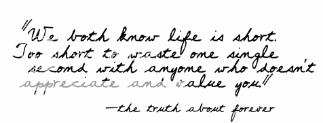 "We both know life is short.
Too short to waste one single
second with anyone who doesn't
appreciate and value you."
—the truth about forever